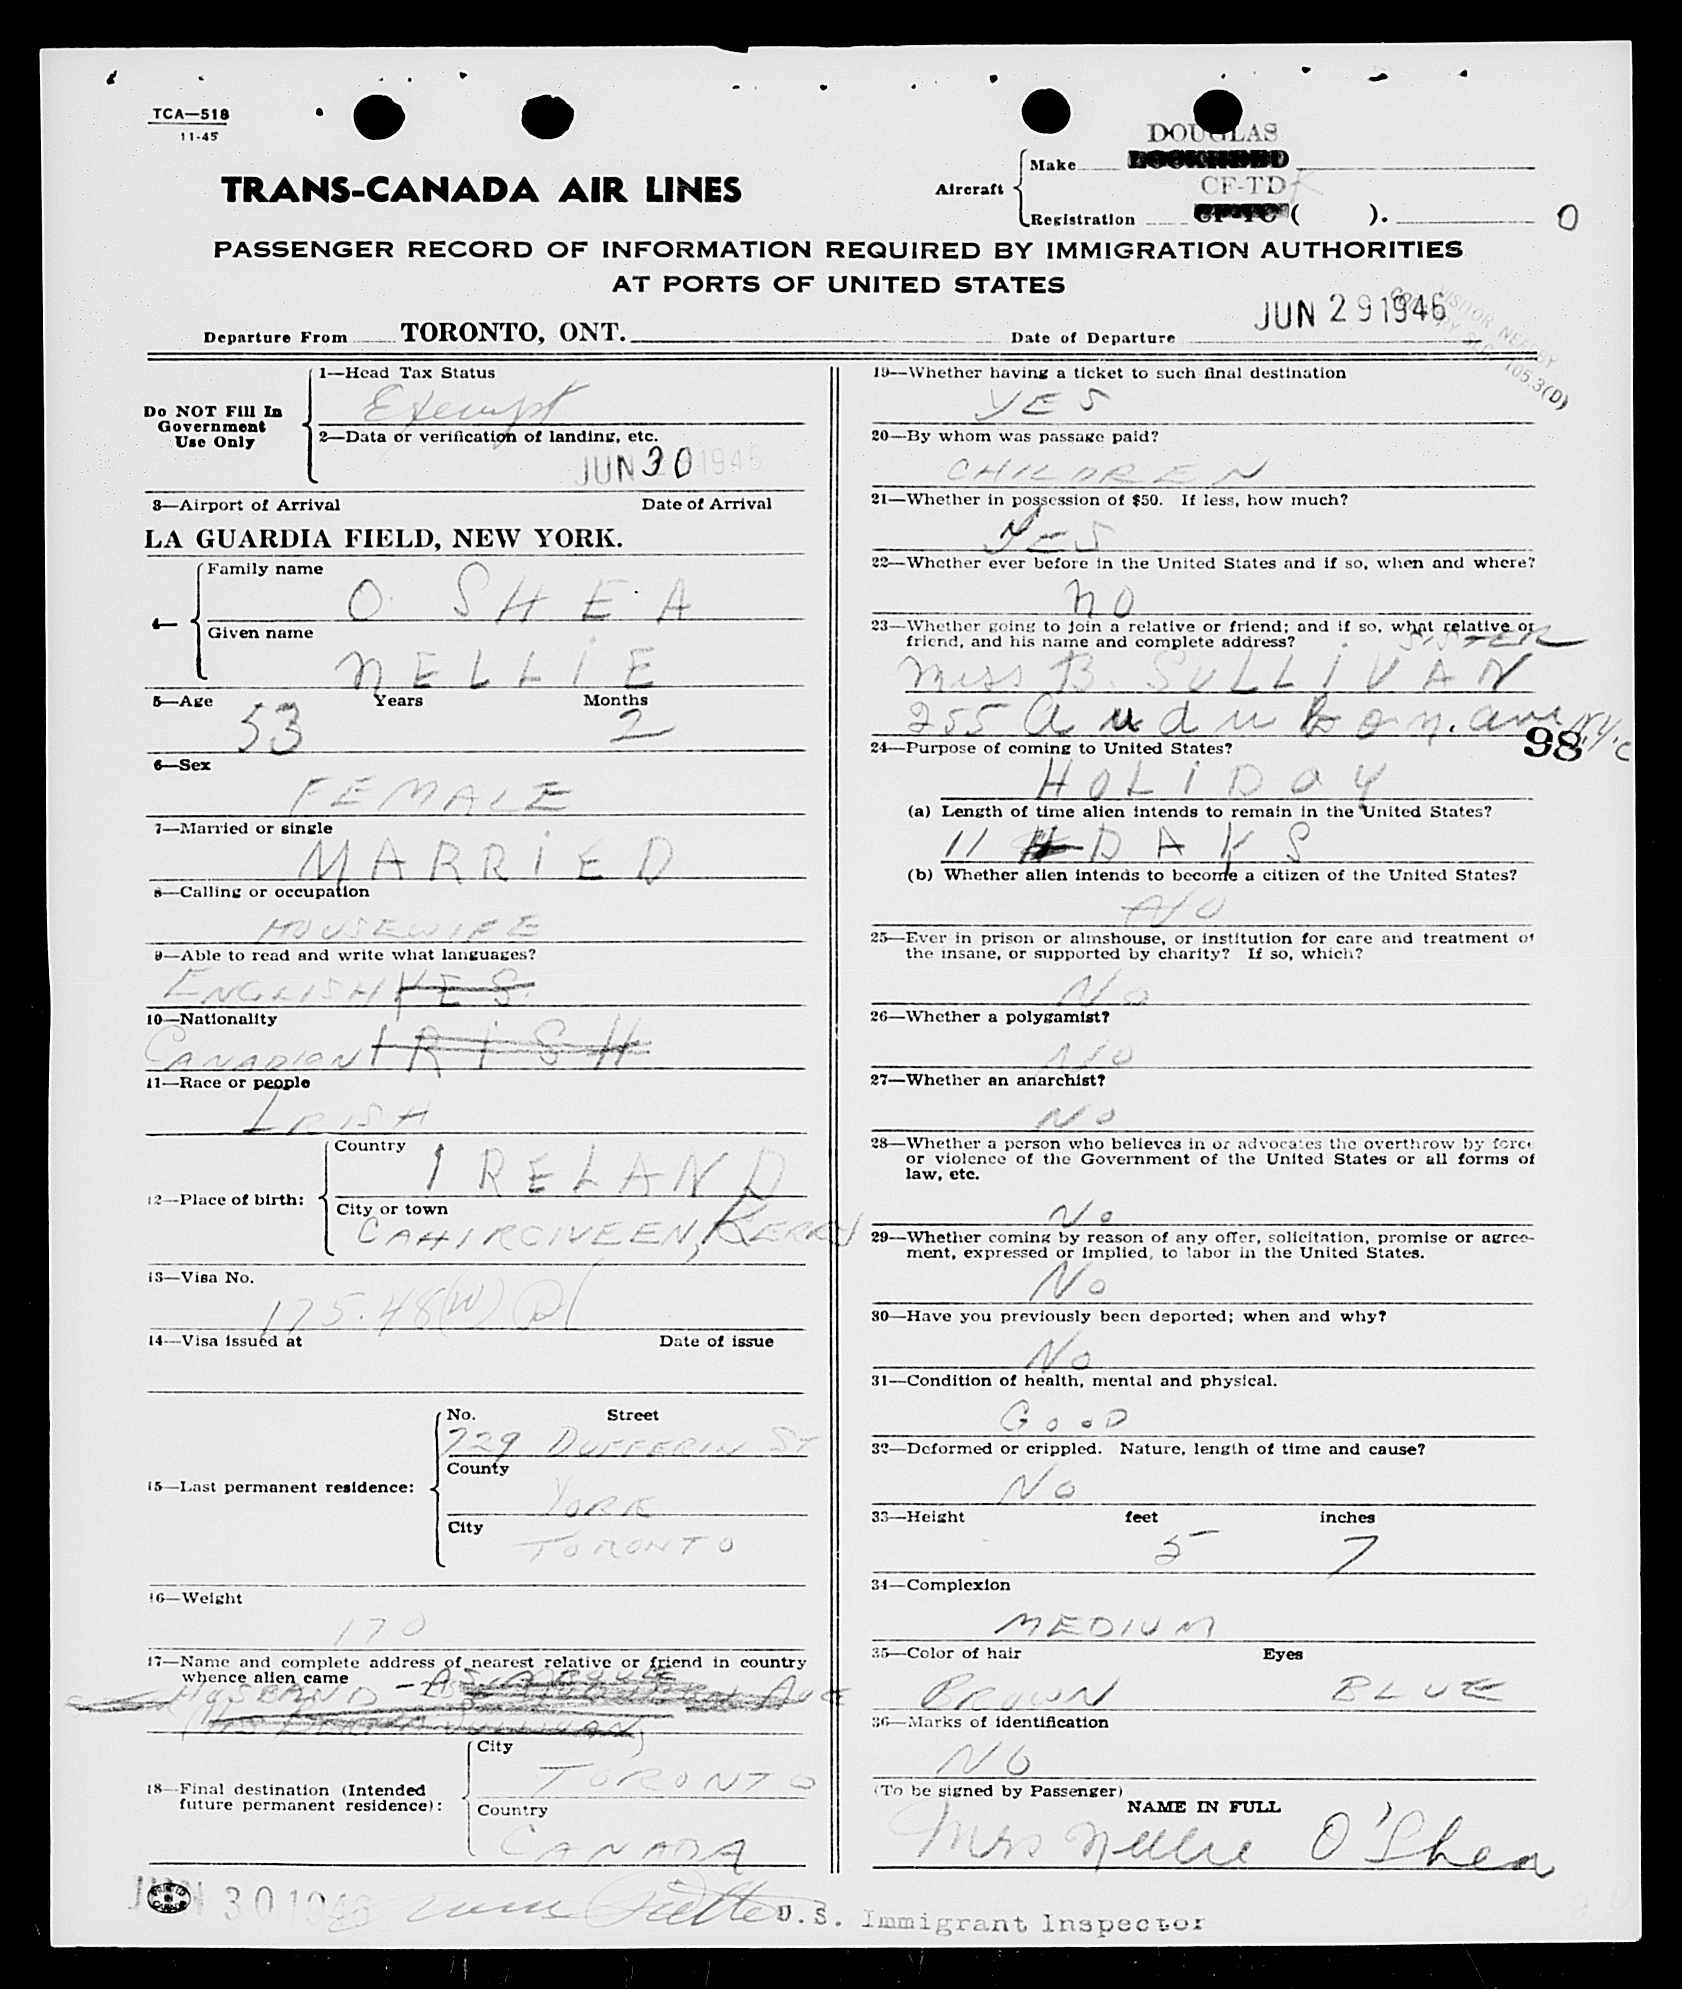 TCA—518
11-45
DOUGLAS
Make
LOCKHEED
TRANS-CANADA AIR LINES
Aircraft
CF-TDK
Registration CF-TC ( ).
0
PASSENGER RECORD OF INFORMATION REQUIRED BY IMMIGRATION AUTHORITIES
AT PORTS OF UNITED STATES
JUN 29 1946
Departure From TORONTO, ONT.
Date of Departure
VISITOR
105.3(D)
Do NOT Fill In
Government
Use Only
1—Head Tax Status
Exempt
2—Data or verification of landing, etc.
JUN 30 1946
3—Airport of Arrival Date of Arrival
LA GUARDIA FIELD, NEW YORK.
4—
Family name
O SHEA
Given name
NELLIE
5—Age Years Months
53 2
6—Sex
FEMALE
7—Married or single
MARRIED
8—Calling or occupation
HOUSEWIFE
9—Able to read and write what languages?
ENGLISH YES.
10—Nationality
CANADIAN IRISH
11—Race or people
IRISH
12—Place of birth:
Country
IRELAND
City or town
CAHIRCIVEEN, KERRY
13—Visa No.
175.48(W)
14—Visa issued at Date of issue
15—Last permanent residence:
No. Street
729 DUFFERIN ST
County
YORK
City
TORONTO
16—Weight
170
17—Name and complete address of nearest relative or friend in country
whence alien came
HUSBAND - AS ABOVE
AVE
SULLIVAN
18—Final destination (Intended
future permanent residence):
City
TORONTO
Country
CANADA
19—Whether having a ticket to such final destination
YES
20—By whom was passage paid?
CHILDREN
21—Whether in possession of $50. If less, how much?
YES
22—Whether ever before in the United States and if so, when and where?
NO
23—Whether going to join a relative or friend; and if so, what relative or
friend, and his name and complete address?
SISTER
Miss B. SULLIVAN
255 Audubon. ave N.Y.C
98
24—Purpose of coming to United States?
HOLIDAY
(a) Length of time alien intends to remain in the United States?
11 DAYS
(b) Whether alien intends to become a citizen of the United States?
NO
25—Ever in prison or almshouse, or institution for care and treatment of
the insane, or supported by charity? If so, which?
No
26—Whether a polygamist?
No
27—Whether an anarchist?
No
28—Whether a person who believes in or advocates the overthrow by force
or violence of the Government of the United States or all forms of
law, etc.
No
29—Whether coming by reason of any offer, solicitation, promise or agree-
ment, expressed or implied, to labor in the United States.
No
30—Have you previously been deported; when and why?
No
31—Condition of health, mental and physical.
GOOD
32—Deformed or crippled. Nature, length of time and cause?
No
33—Height feet inches
5 7
34—Complexion
MEDIUM
35—Color of hair Eyes
BROWN BLUE
36—Marks of identification
NO
(To be signed by Passenger)
NAME IN FULL
Mrs Nellie O'Shea
JUN 30 1946
U.S. Immigrant Inspector